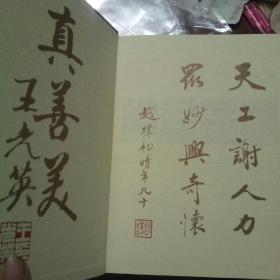 天工謝人力
眾妙興奇懷
趙樸初時年九十
真善美
王光英